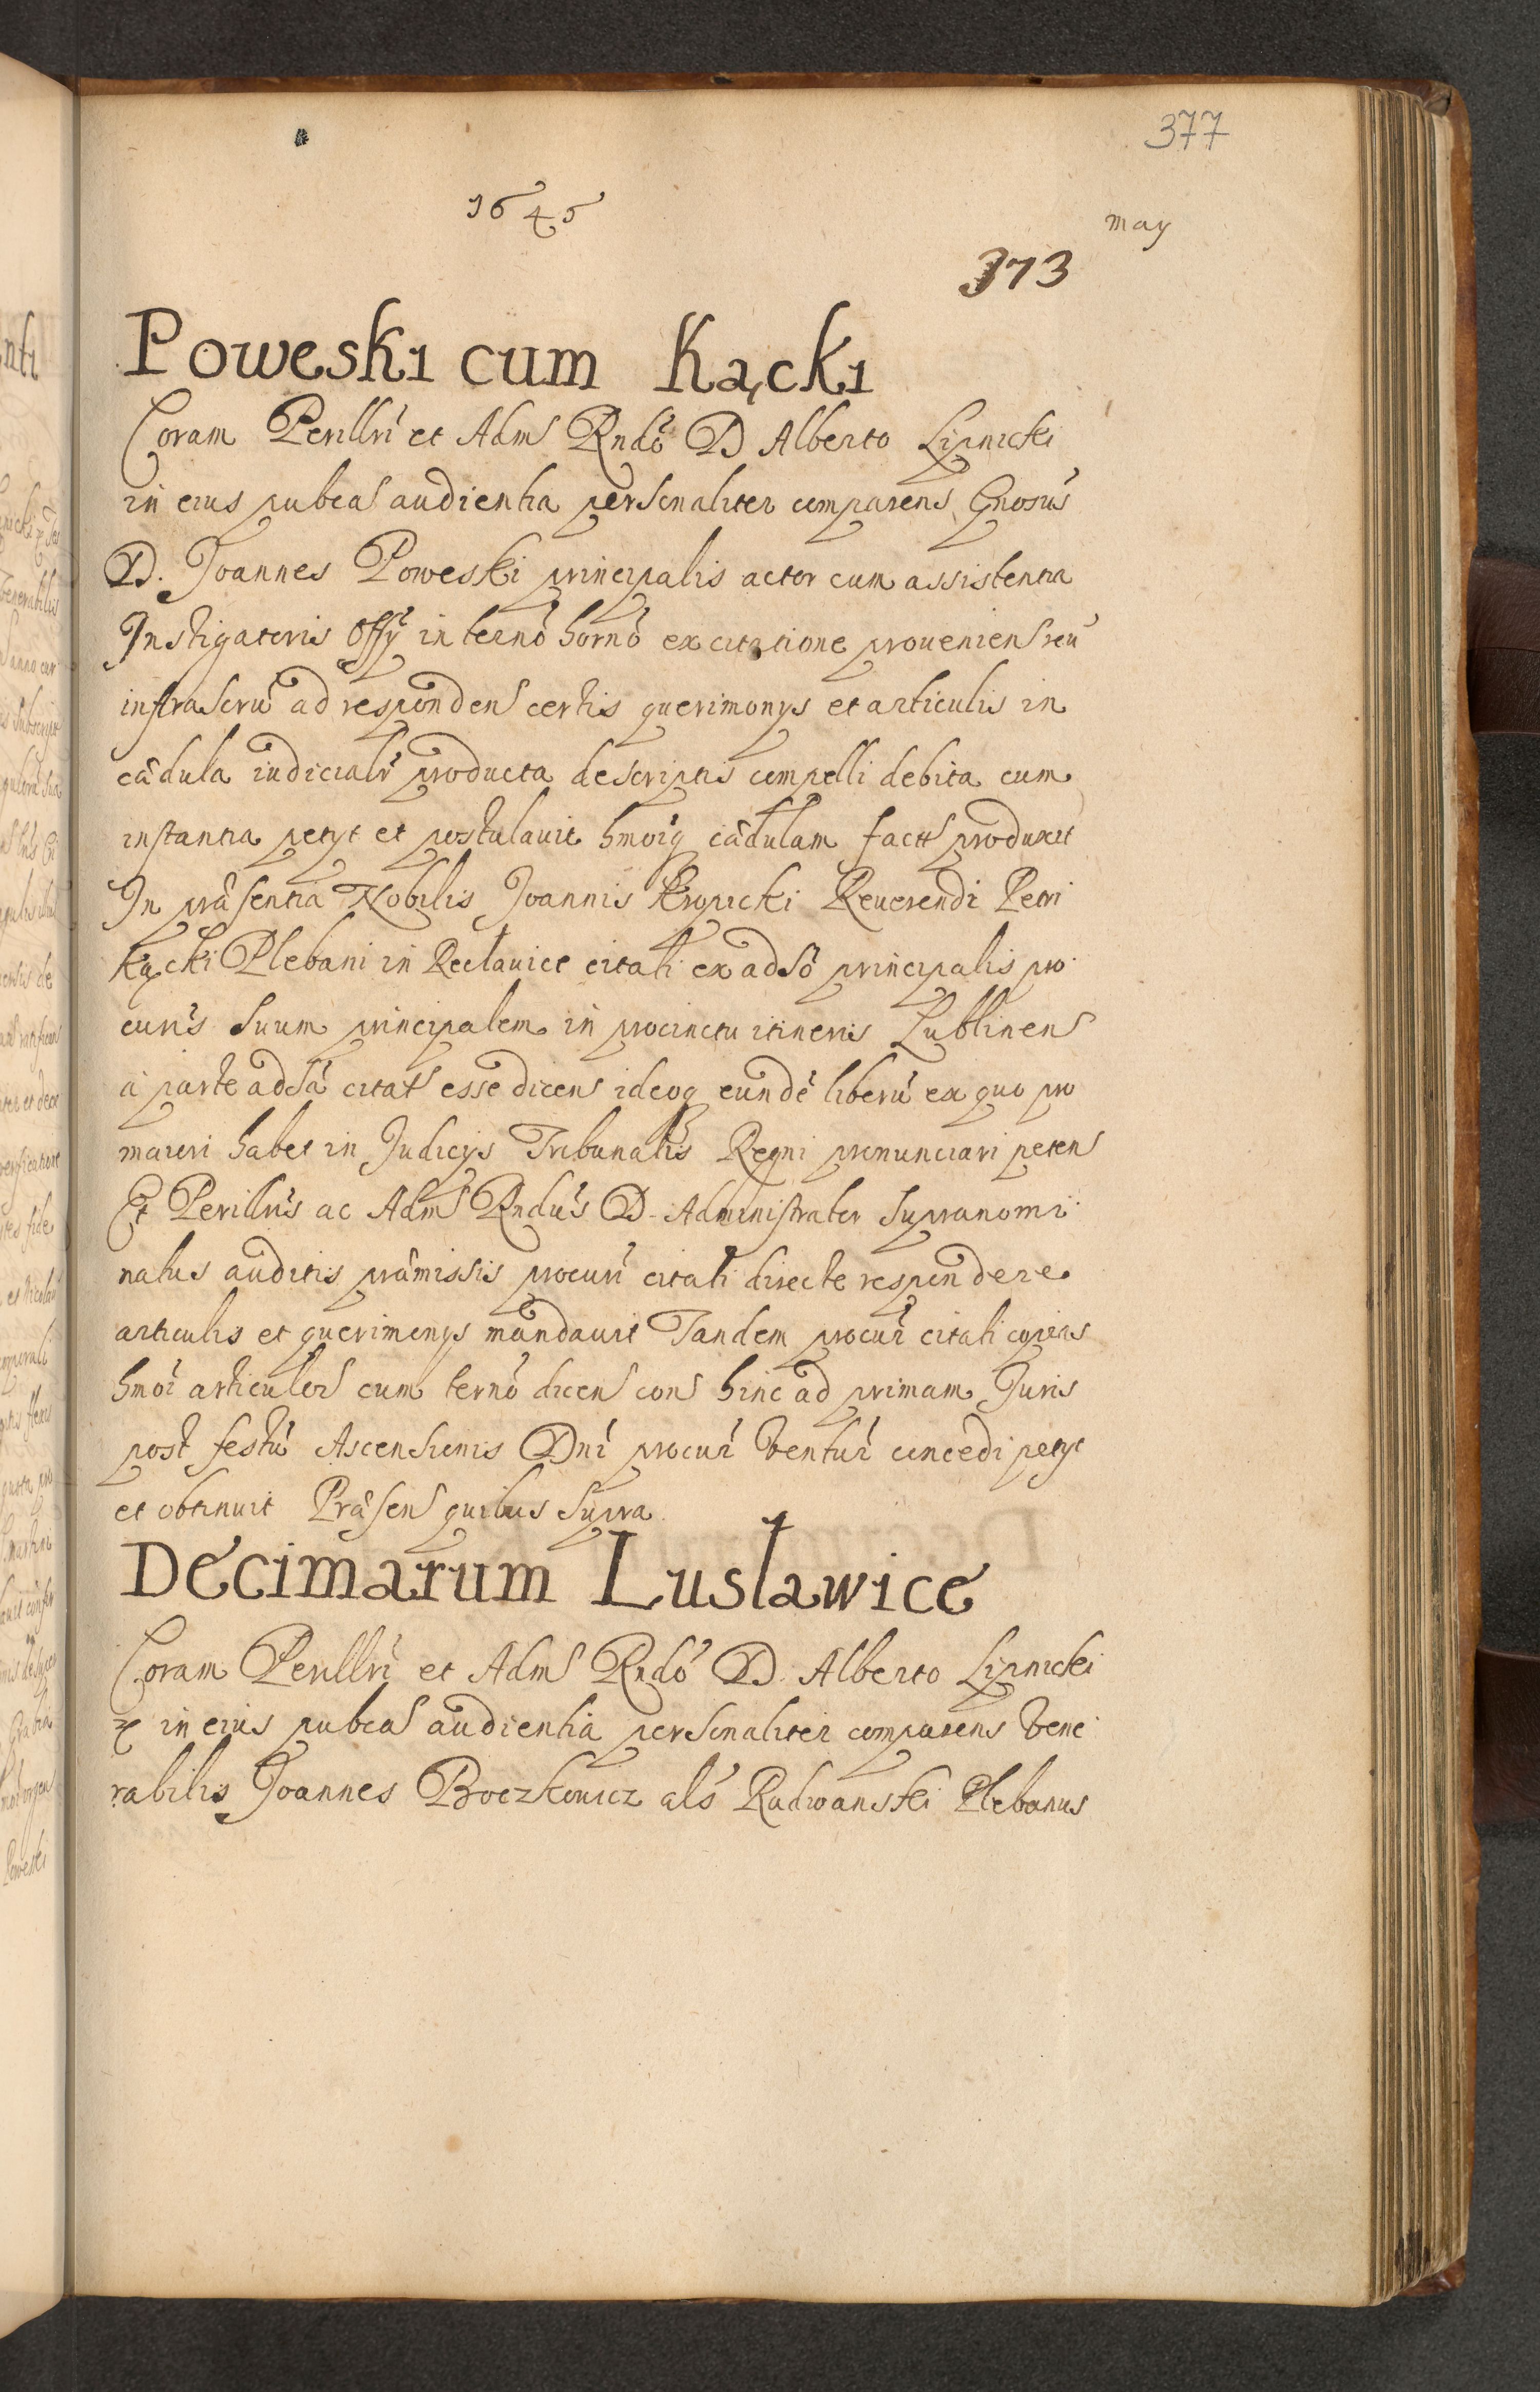 377
1645
may
373
Poweski cum Kącki
Coram Perillri et Adm Rndo D Alberto Lipnicki
in eius pubca audientia personaliter comparens Gnosus
D. Joannes Poweski principalis actor cum assistentia
Instigatoris Offy in termo horno ex citatione proueniens reu
infrascru ad responden certis querimonys et articulis in
cædula iudiciali producta descriptis compelli debita cum
instantia petyt et postulauit hmoiq cædulam facti produxit
In præsentia Nobilis Joannis Kropicki Reuerendi Petri
Kącki Plebani in Recławice citati ex adso principalis pro
curis suum principalem in procinctu itineris Lublinen
a parte adsa citat esse dicens ideoq eundē liberū ex quo pro
maiori habet in Judicys Tribunalis Regni pronunciari peten
Et Perillris ac Adm Rndus D. Administrator Supranomi
natus auditis præmissis procuri citati directe respondere
articulis et querimonys mandauit Tandem procur citati copias
hmoi articulor cum termo dicen con hinc ad primam Juris
post festū Ascensionis Dni procur ventur concedi petyt
et obtinuit Præsen quibus supra
Decimarum Lusławice
Coram Perillri et Adm Rndo D. Alberto Lipnicki
in eius pubca audientia personaliter comparens Vene
rabilis Joannes Boczkowicz als Radwanski Plebanus